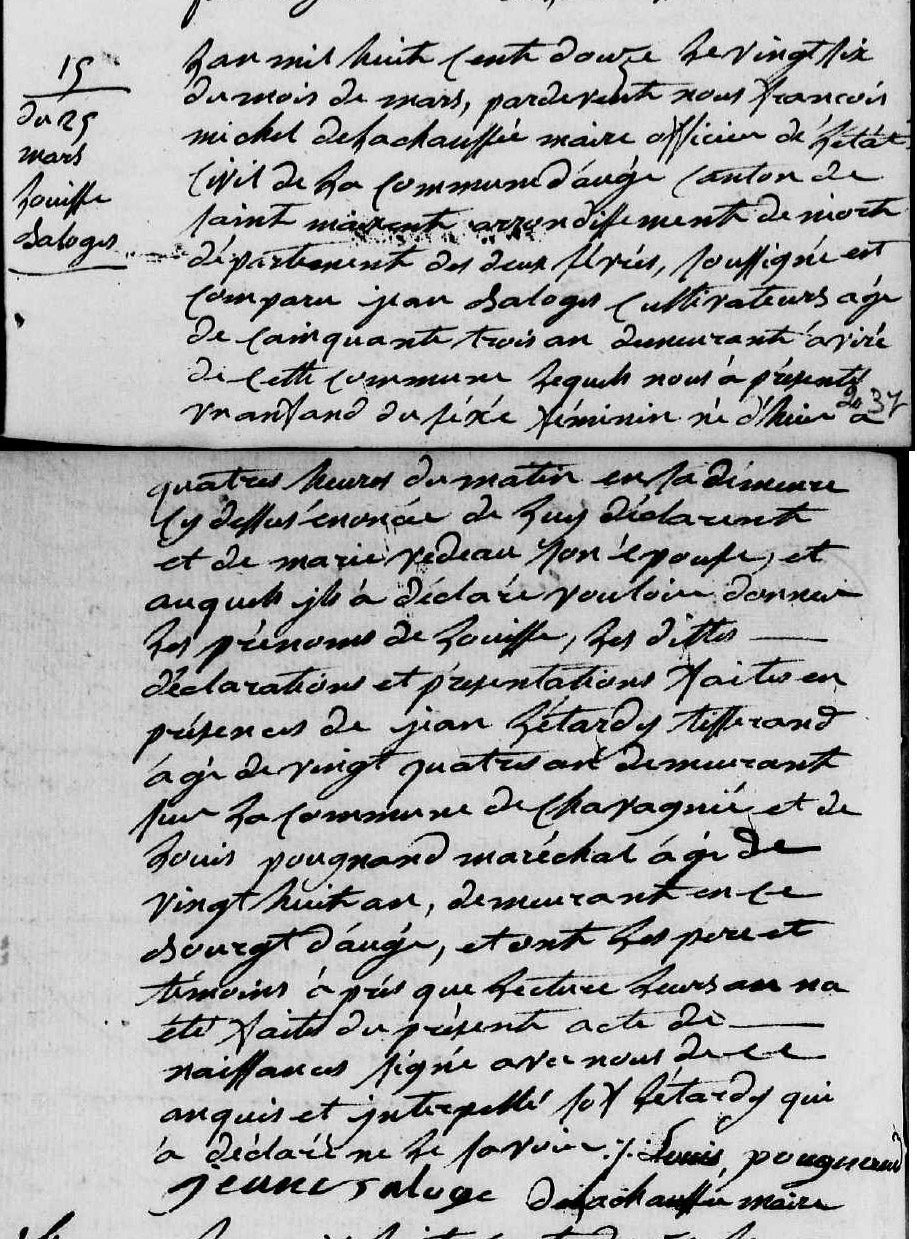 15
du 25
mars
Louisse
Saloges
Lan mil huit cent douze le vingt six
du mois de mars, pardevent nous francois
michel delachaussée maire officier de létat
Civil de la Commune daugé Canton de
saint maixent arrondissement de niort
département des deux sévrés, soussigné est
comparu jean Saloges Cultivateurs agé
de cainquante trois an demeurant à viré
de cette commune lequels nous à présenté
vn anfand du séxé féminin né d'hiere à
2 37
quatres heures du matin en sa démeure
Cy dessus énoncée de luy déclarent
et de marie vedeau son épouse, et
auquels jls à déclaré vouloire donner
les prénoms de Louisse, les dittes
déclarations et présentations faites en
présences de jean Létardy tisserand
àgé de vingt quatres an demeurant
sur la commune de Chavagnié et de
Louis pougnand maréchal àgé de
vingt huit an, demeurant en ce
Bourgt daugé, et ont les pere et
témoins à près que lecture leurs an na
été faites du présent acte de
naissances signé avec nous de ce
anquis et jnterpellé sof Létardy qui
à déclaré ne le savoir ./. Louis, pougneaud
jeune saloge delachaussée maire